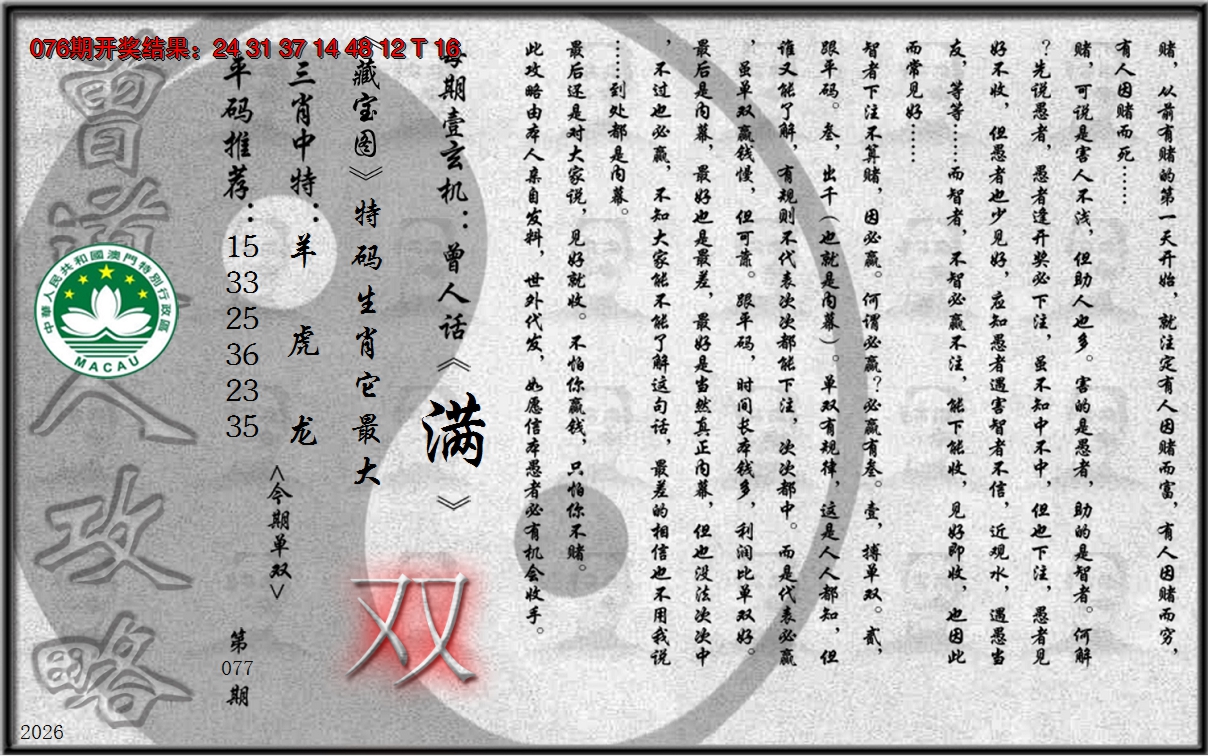 076期开奖结果：24 31 37 14 48 12 T 16
赌，从前有赌的第一天开始，就注定有人因赌而富，有人因赌而穷，
有人因赌而死……
赌，可说是害人不浅，但助人也多。害的是愚者，助的是智者。何解
？先说愚者，愚者逢开奖必下注，虽不知中不中，但也下注，愚者见
好不收，但愚者也少见好，应知愚者遇害智者不信，近观水，遇愚当
友，等等……而智者，不智必赢不注，能下能收，见好即收，也因此
而常见好……
智者下注不算赌，因必赢。何谓必赢？必赢有叁。壹，搏单双。贰，
跟平码。叁，出千（也就是内幕）。单双有规律，这是人人都知，但
谁又能了解，有规则不代表次次都能下注，次次都中。而是代表必赢
，虽单双赢钱慢，但可靠。跟平码，时间长本钱多，利润比单双好。
最后是内幕，最好也是最差，最好是当然真正内幕，但也没法次次中
，不过也必赢，不知大家能不能了解这句话，最差的相信也不用我说
……到处都是内幕。
最后还是对大家说，见好就收。不怕你赢钱，只怕你不赌。
此攻略由本人亲自发料，世外代发，如愿信本愚者必有机会收手。
每期壹玄机：曾人话《满》
《藏宝图》特码生肖它最大
双
三肖中特：羊 虎 龙
<今期单双>
平码推荐：15 33 25 36 23 35
第077期
曾道人攻略
中華人民共和國澳門特別行政區
MACAU
2026